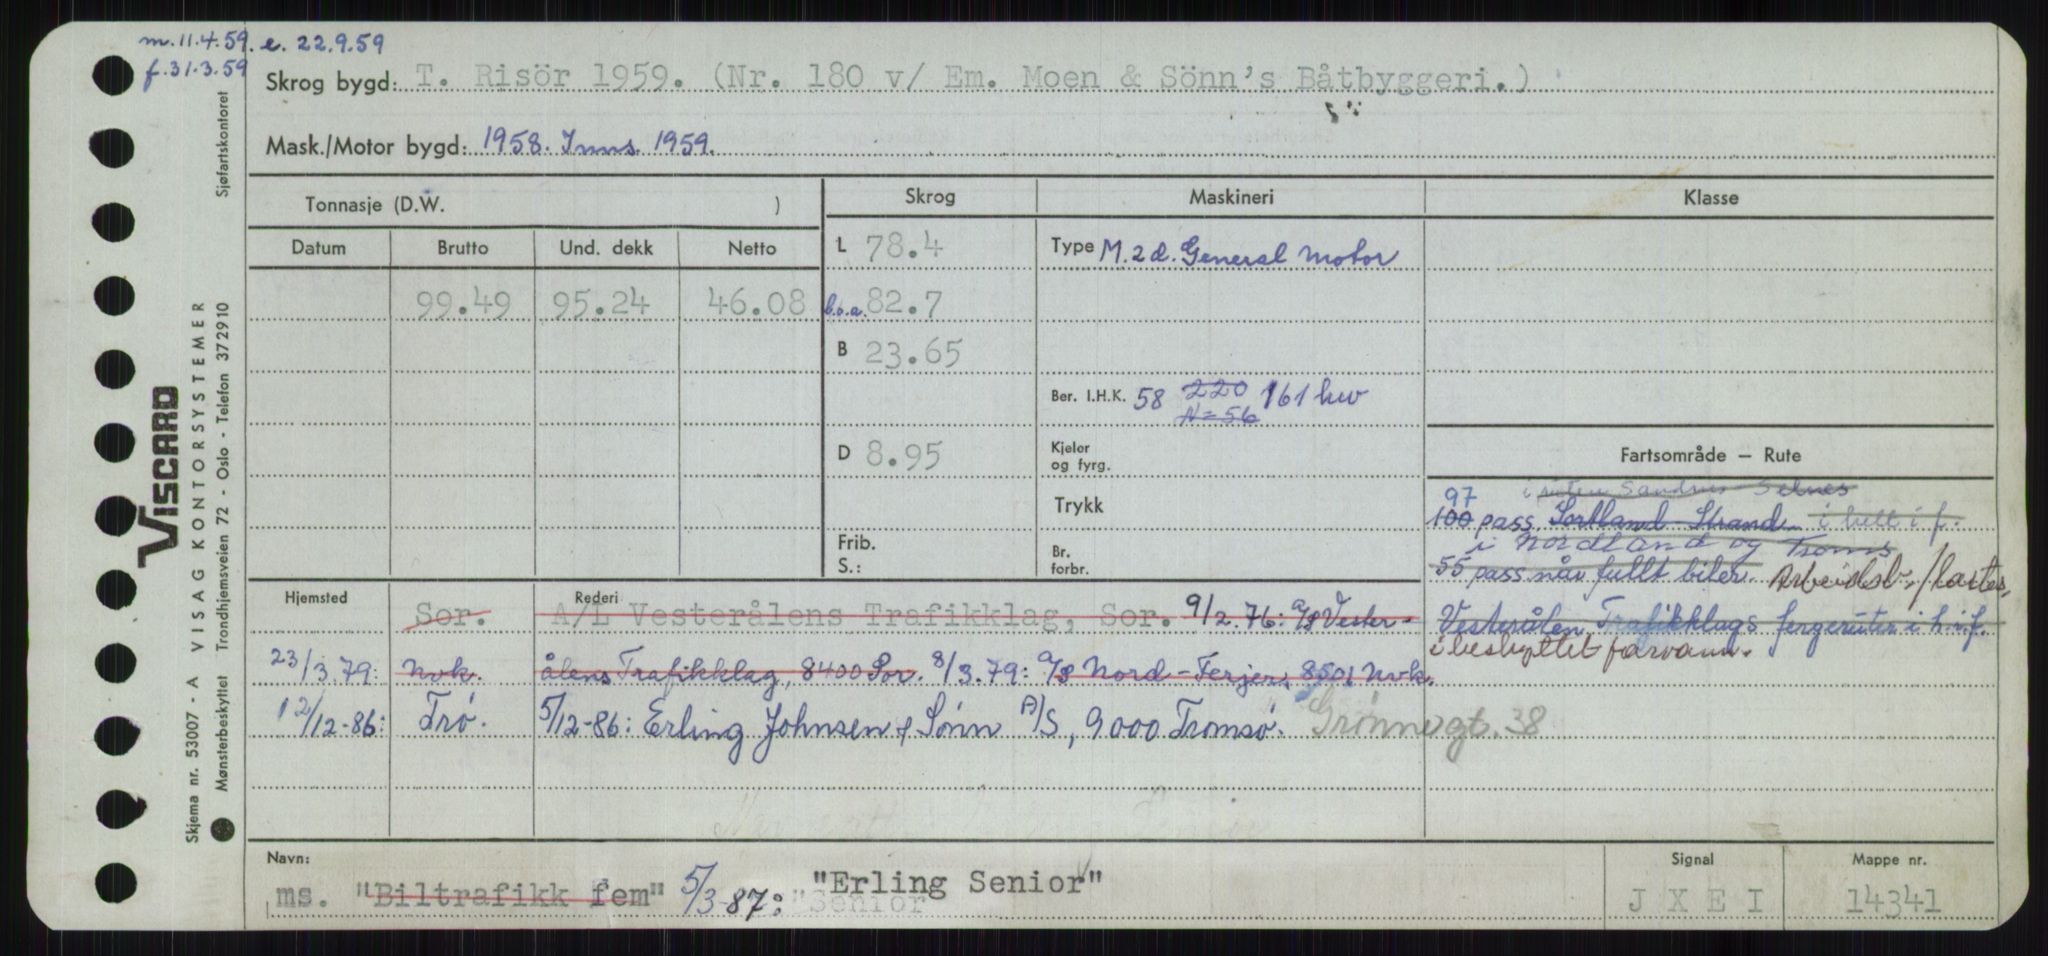 m. 11.4.59. e. 22.9.59
f. 31.3.59
Skrog bygd: T. Risör 1959. (Nr. 180 v/ Em. Moen & Sönn's Båtbyggeri.)
Mask./Motor bygd: 1958. Inns. 1959.
Sjøfartskontoret
VISCARD
VISAG KONTORSYSTEMER
Skjema nr. 53007 - A
Mønsterbeskyttet Trondhjemsveien 72 - Oslo - Telefon 372910
Tonnasje (D.W. ) Skrog Maskineri Klasse
Datum Brutto Und. dekk Netto L 78.4 Type M. 2 d. General Motor
99.49 95.24 46.08 b.o.a. 82.7
B 23.65
Ber. I.H.K. 58 220 161 kw
N = 56
D 8.95 Kjeler
og fyrg.
Trykk
Frib.
S.:
Br.
forbr.
Fartsområde – Rute
i ruten Sandnes Selnes
97
100 pass Sortland - Strand i helt i f.
i Nordland og Troms
55 pass når fullt biler. Arbeidsb./lastes.
Vesterålen Trafikklags fergeruter i h.i.f.
i beskyttet farvann.
Hjemsted Rederi
Sor. A/L Vesterålens Trafikklag, Sor. 9/2.76: A/S Vester-
23/3.79: Nvk. ålens Trafikklag, 8400 Sor. 8/3.79: A/S Nord-Ferjer, 8501 Nvk.
12/12-86: Trø. 5/12-86: Erling Johnsen & Sønn A/S, 9000 Tromsø. Grønnegt. 38
Navn: Signal Mappe nr.
ms. "Biltrafikk fem" 5/3-87: "Erling Senior" J X E I 14341
"Senior